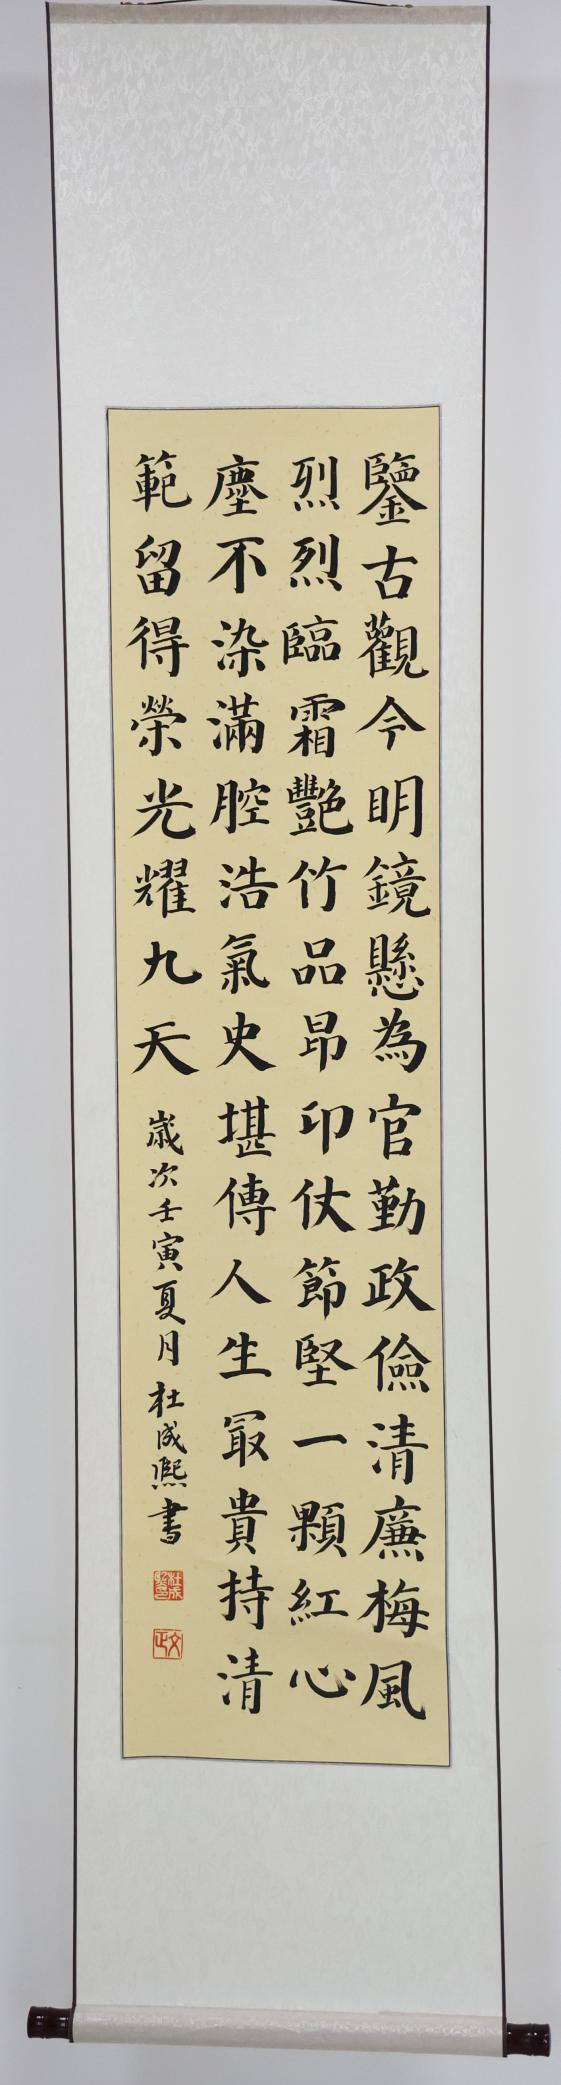 鑒古觀今明鏡懸為官勤政儉清廉梅風
烈烈臨霜艷竹品昂昂仗節堅一顆紅心
塵不染滿腔浩氣史堪傳人生冣貴持清
範留得榮光耀九天
歲次壬寅夏月杜成熙書
杜成熙印
文正